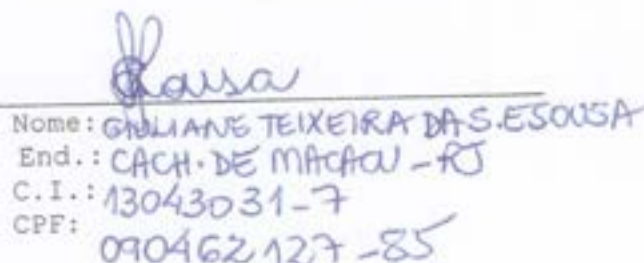 Sousa
Nome: GIULIANE TEIXEIRA DA S. E SOUSA
End.: CACH. DE MACACU - RJ
C.I.: 13043031-7
CPF: 090462127-85